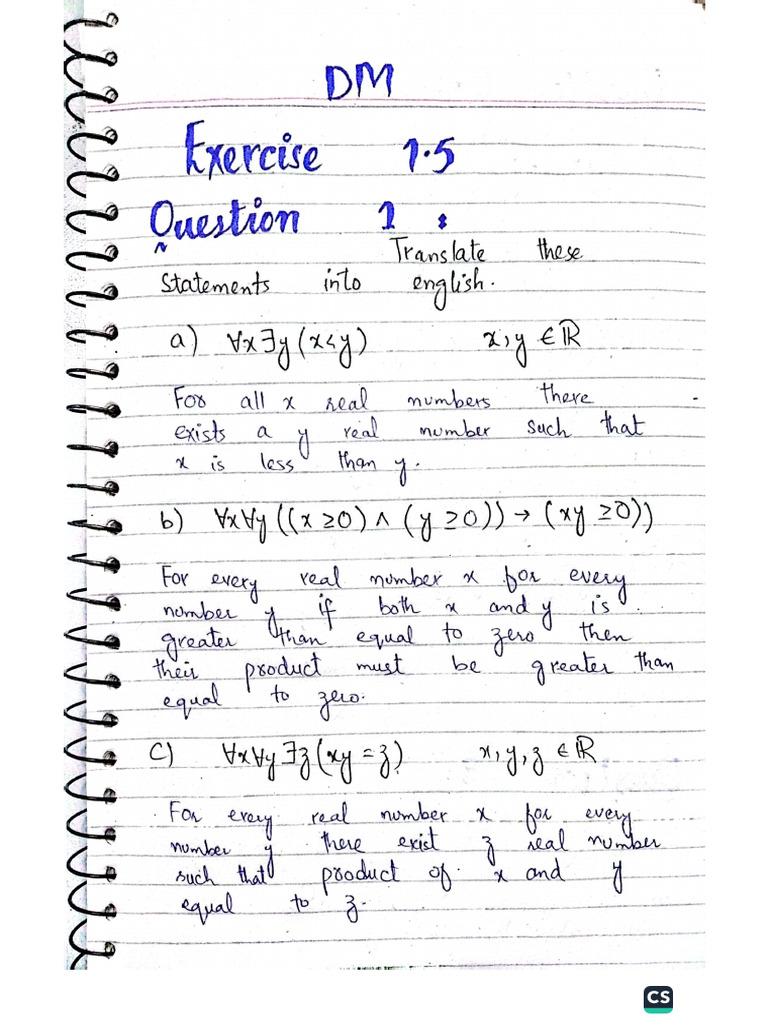 DM
Exercise 1.5
Question 1 :
Translate these
statements into english.
a) ∀x∃y(x<y) x,y ∈ℝ
For all x real numbers there
exists a y real number such that
x is less than y.
b) ∀x∀y((x≥0)∧(y≥0))→(xy≥0))
For every real number x for every
number y if both x and y is
greater than equal to zero then
their product must be greater than
equal to zero.
c) ∀x∀y∃z(xy=z) x,y,z ∈ℝ
For every real number x for every
number y there exist z real number
such that product of x and y
equal to z.
CS